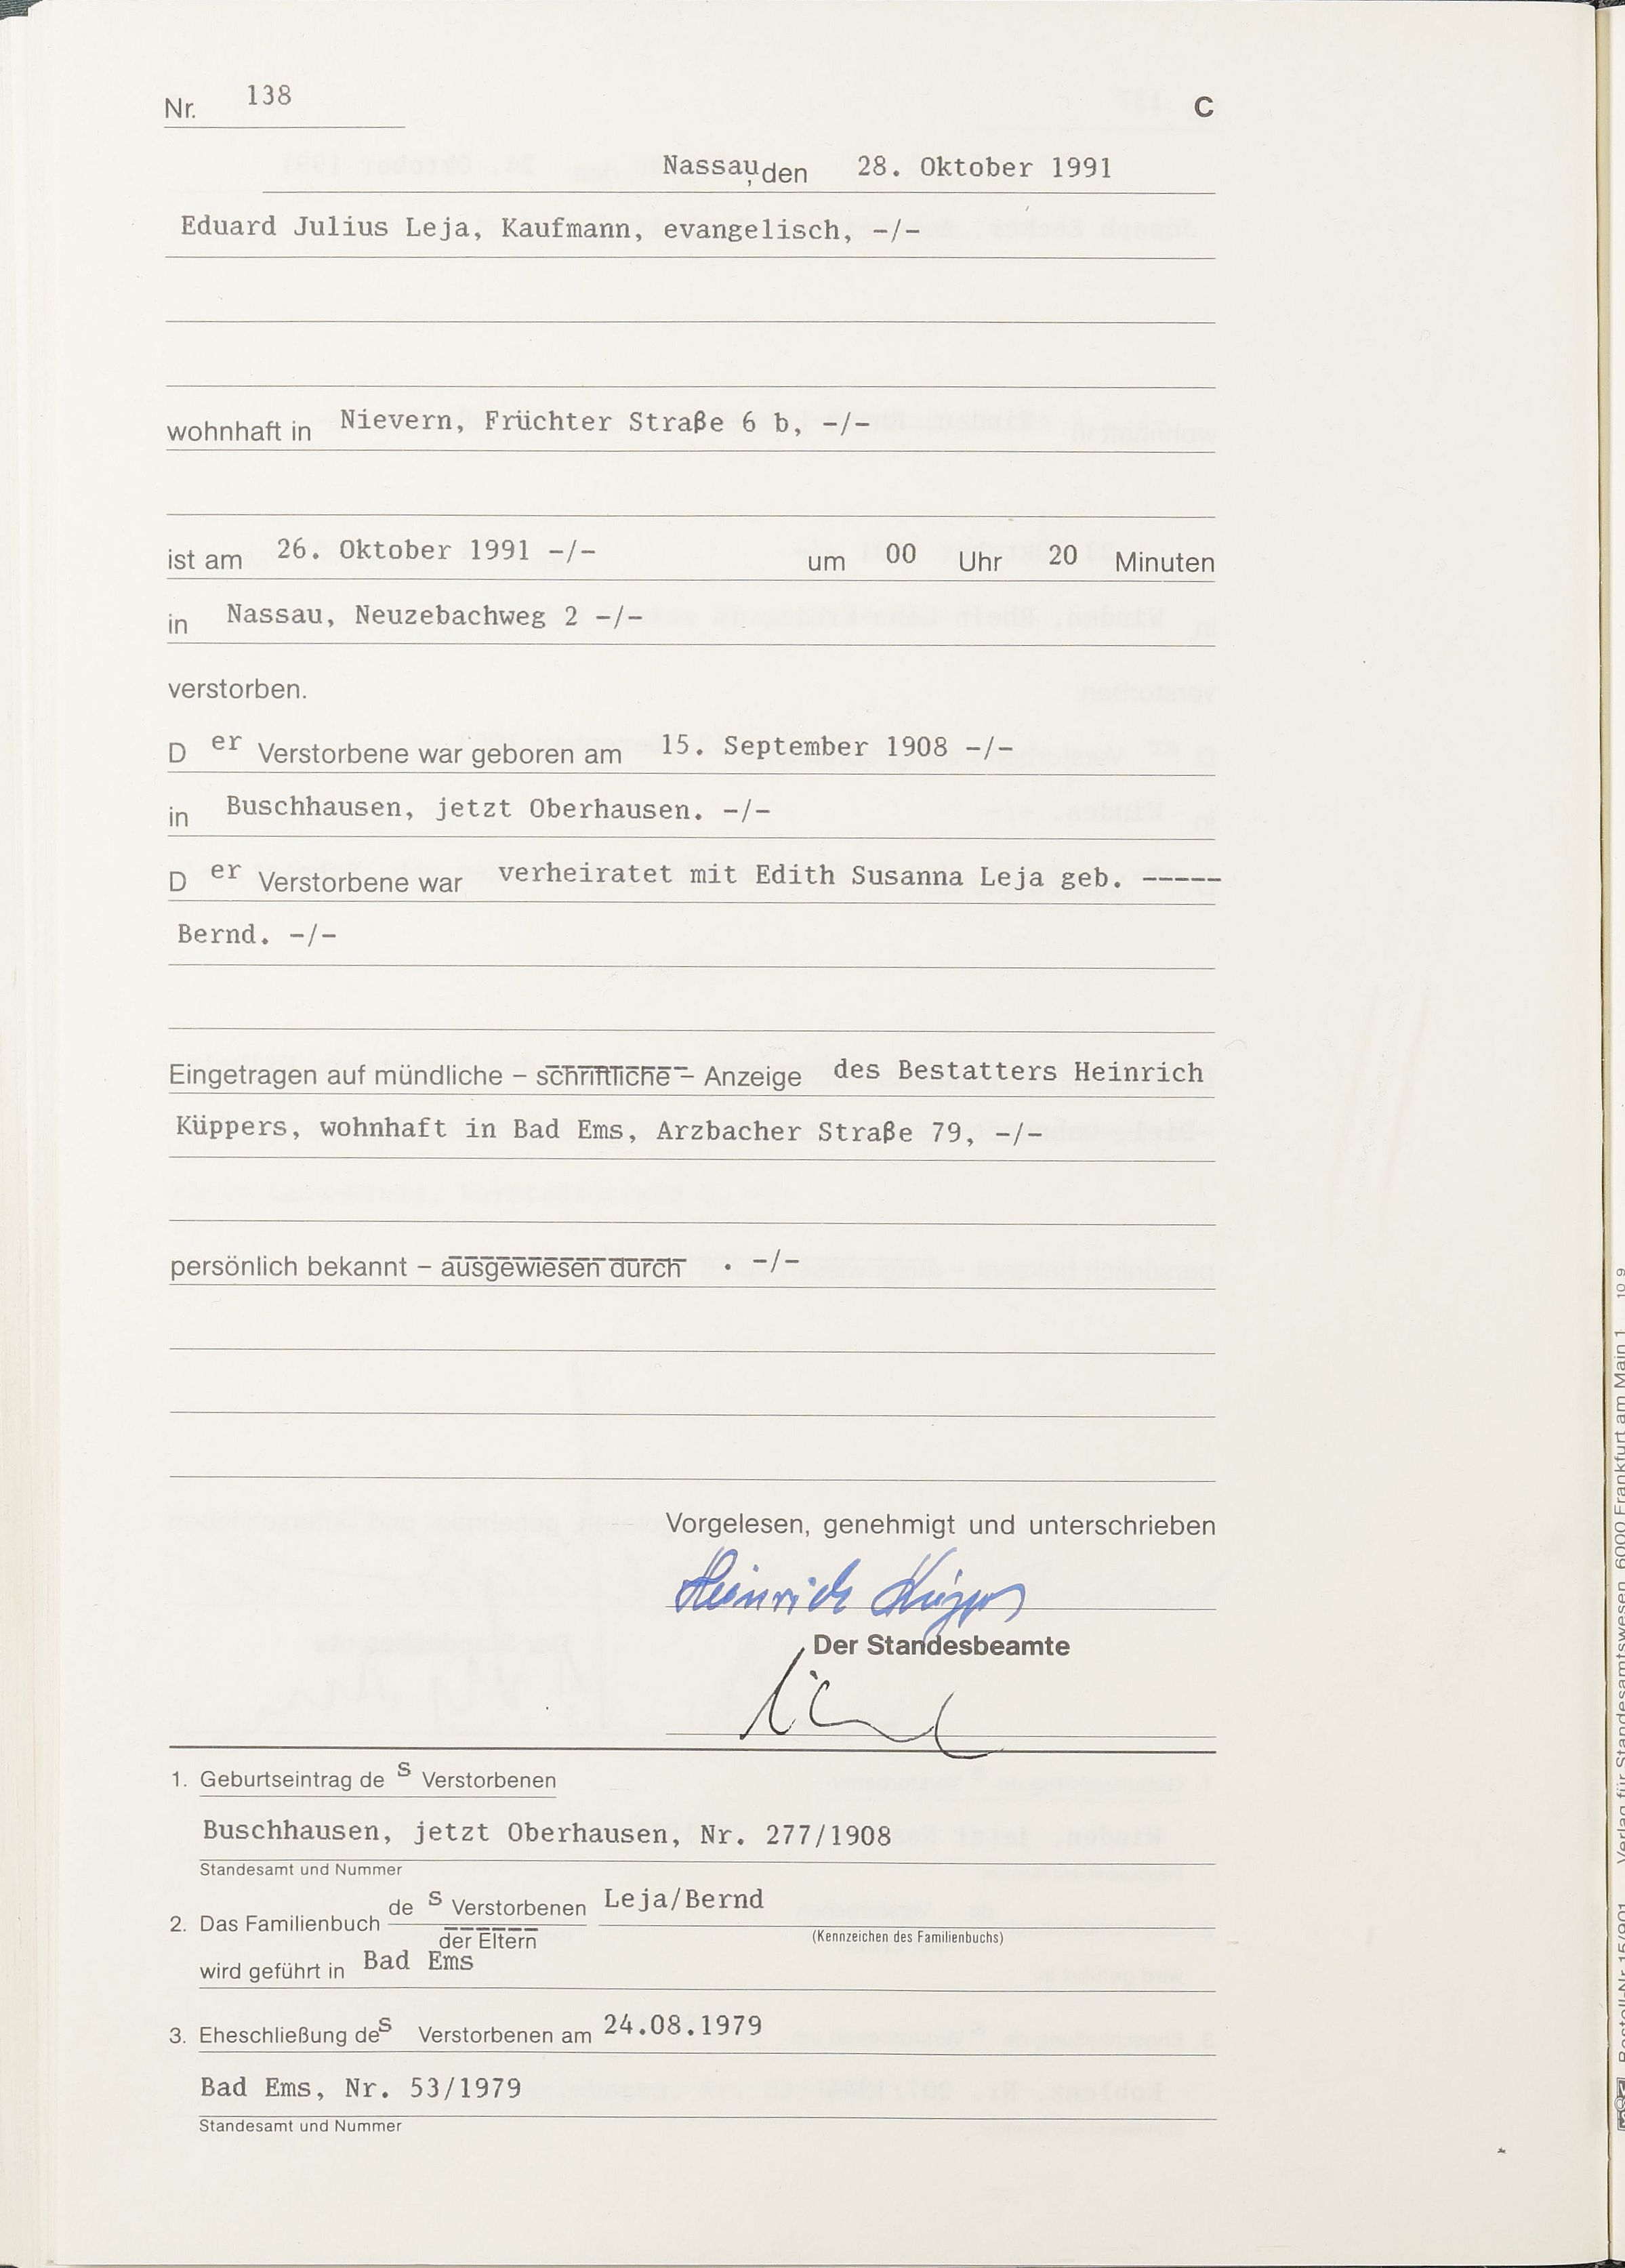 Nr. 138 C
Nassau, den 28. Oktober 1991
Eduard Julius Leja, Kaufmann, evangelisch, -/-
wohnhaft in Nievern, Früchter Straße 6 b, -/-
ist am 26. Oktober 1991 -/- um 00 Uhr 20 Minuten
in Nassau, Neuzebachweg 2 -/-
verstorben.
D er Verstorbene war geboren am 15. September 1908 -/-
in Buschhausen, jetzt Oberhausen. -/-
D er Verstorbene war verheiratet mit Edith Susanna Leja geb. -----
Bernd. -/-
Eingetragen auf mündliche – schriftliche – Anzeige des Bestatters Heinrich
Küppers, wohnhaft in Bad Ems, Arzbacher Straße 79, -/-
persönlich bekannt – ausgewiesen durch . -/-
Vorgelesen, genehmigt und unterschrieben
Heinrich Küppers
Der Standesbeamte
1. Geburtseintrag de s Verstorbenen
Buschhausen, jetzt Oberhausen, Nr. 277/1908
Standesamt und Nummer
2. Das Familienbuch de s Verstorbenen Leja/Bernd
der Eltern (Kennzeichen des Familienbuchs)
wird geführt in Bad Ems
3. Eheschließung des Verstorbenen am 24.08.1979
Bad Ems, Nr. 53/1979
Standesamt und Nummer
Verlag für Standesamtswesen, 6000 Frankfurt am Main 1